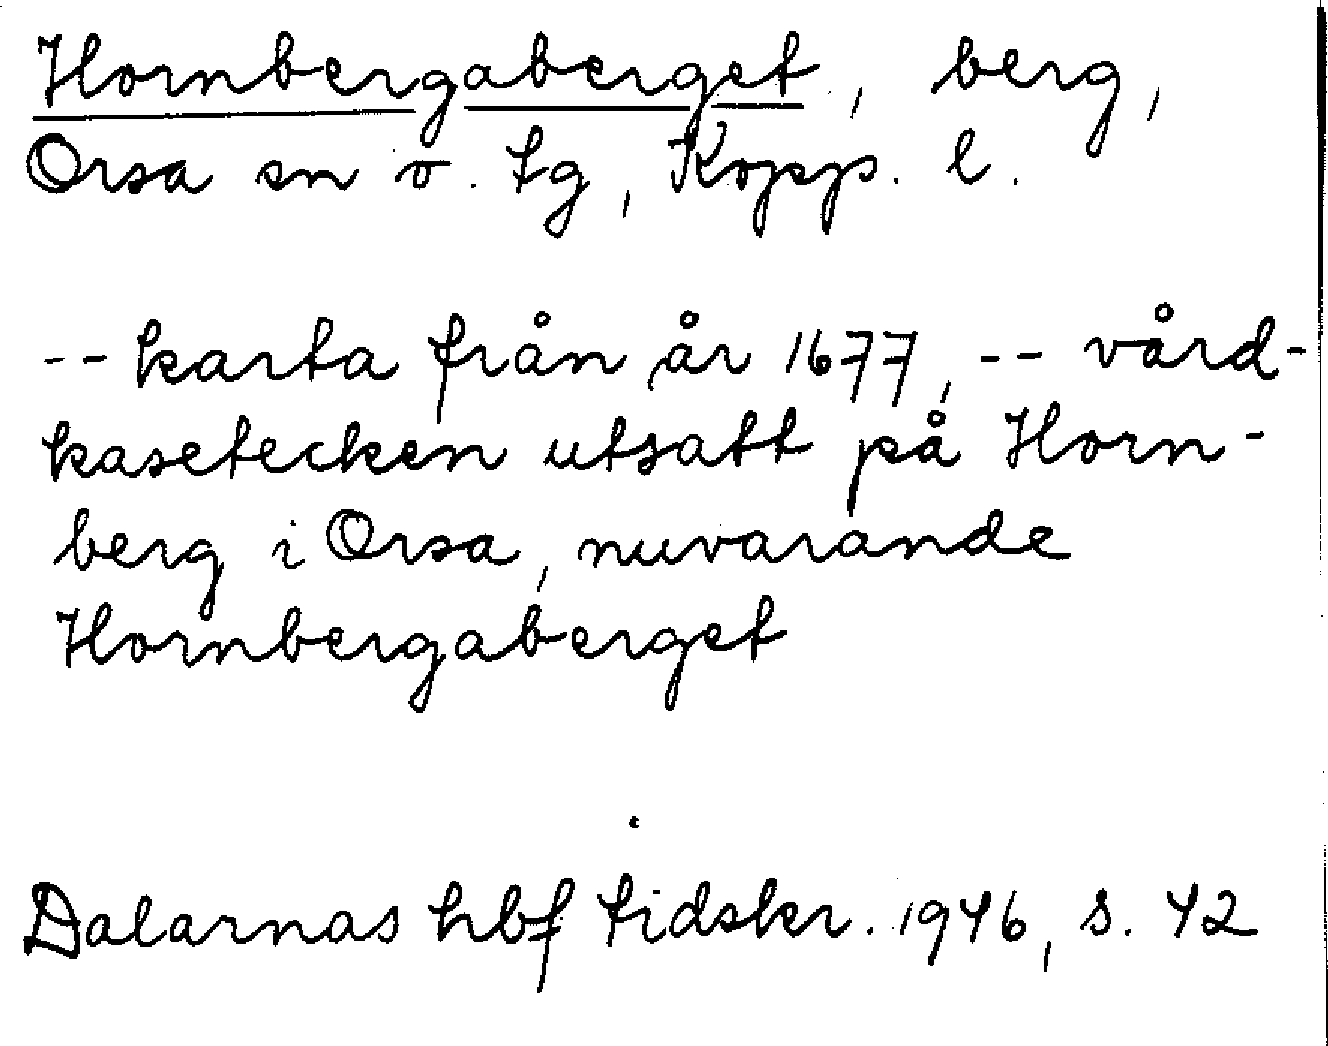 Hornbergaberget, berg,
Orsa sn o. tg, Kopp. l.
-- karta från år 1677, -- vård-
kasetecken utsatt på Horn-
berg i Orsa, nuvarande
Hornbergaberget
Dalarnas hbf tidskr. 1946, s. 42